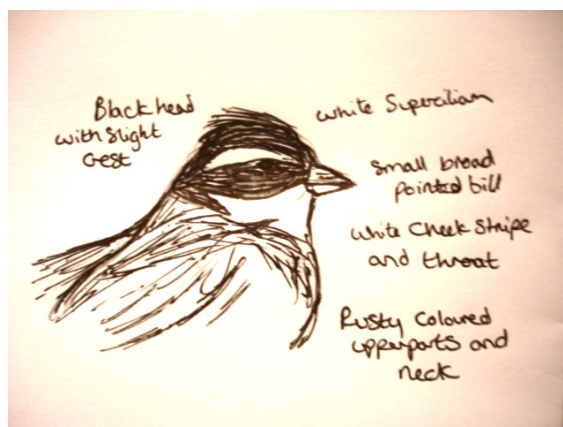 Black head
with slight
crest
white Supercilium
small broad
pointed bill
white Cheek Stripe
and throat
Rusty Coloured
upperparts and
neck